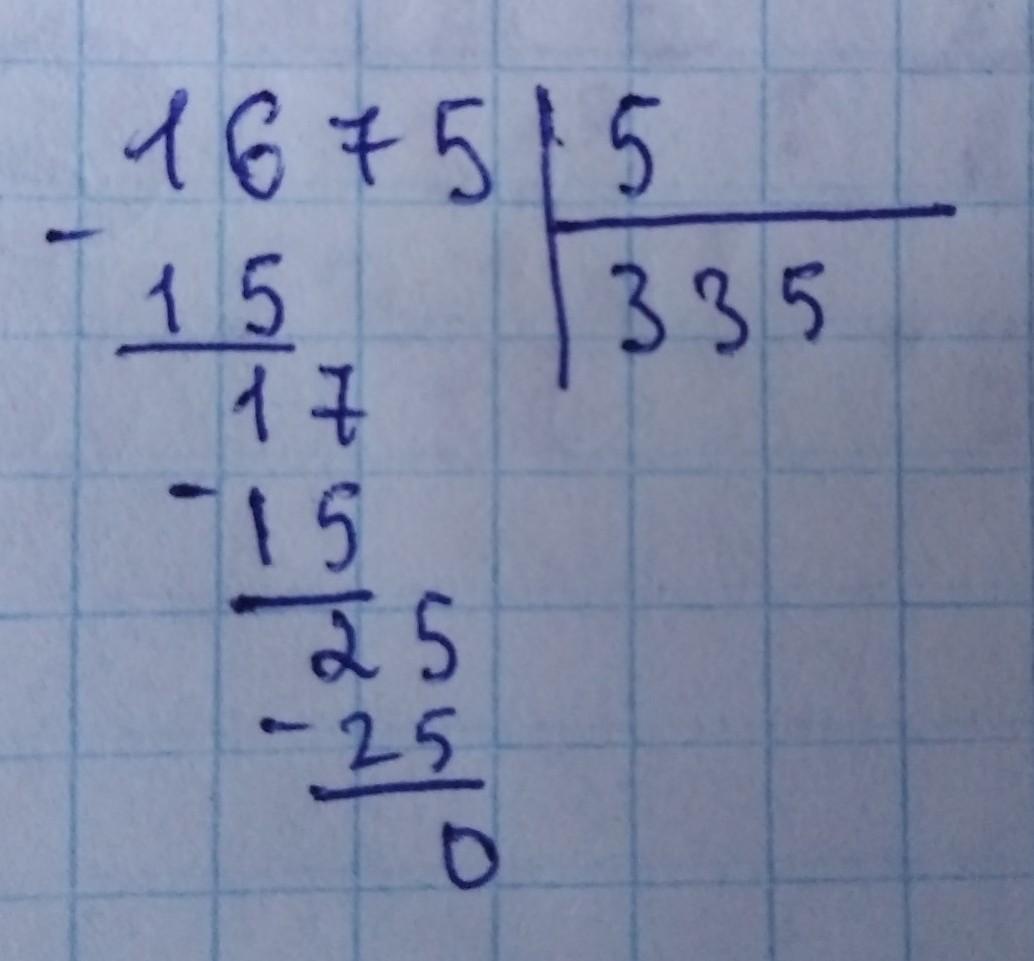 1675 5
- 15 335
17
- 15
25
- 25
0